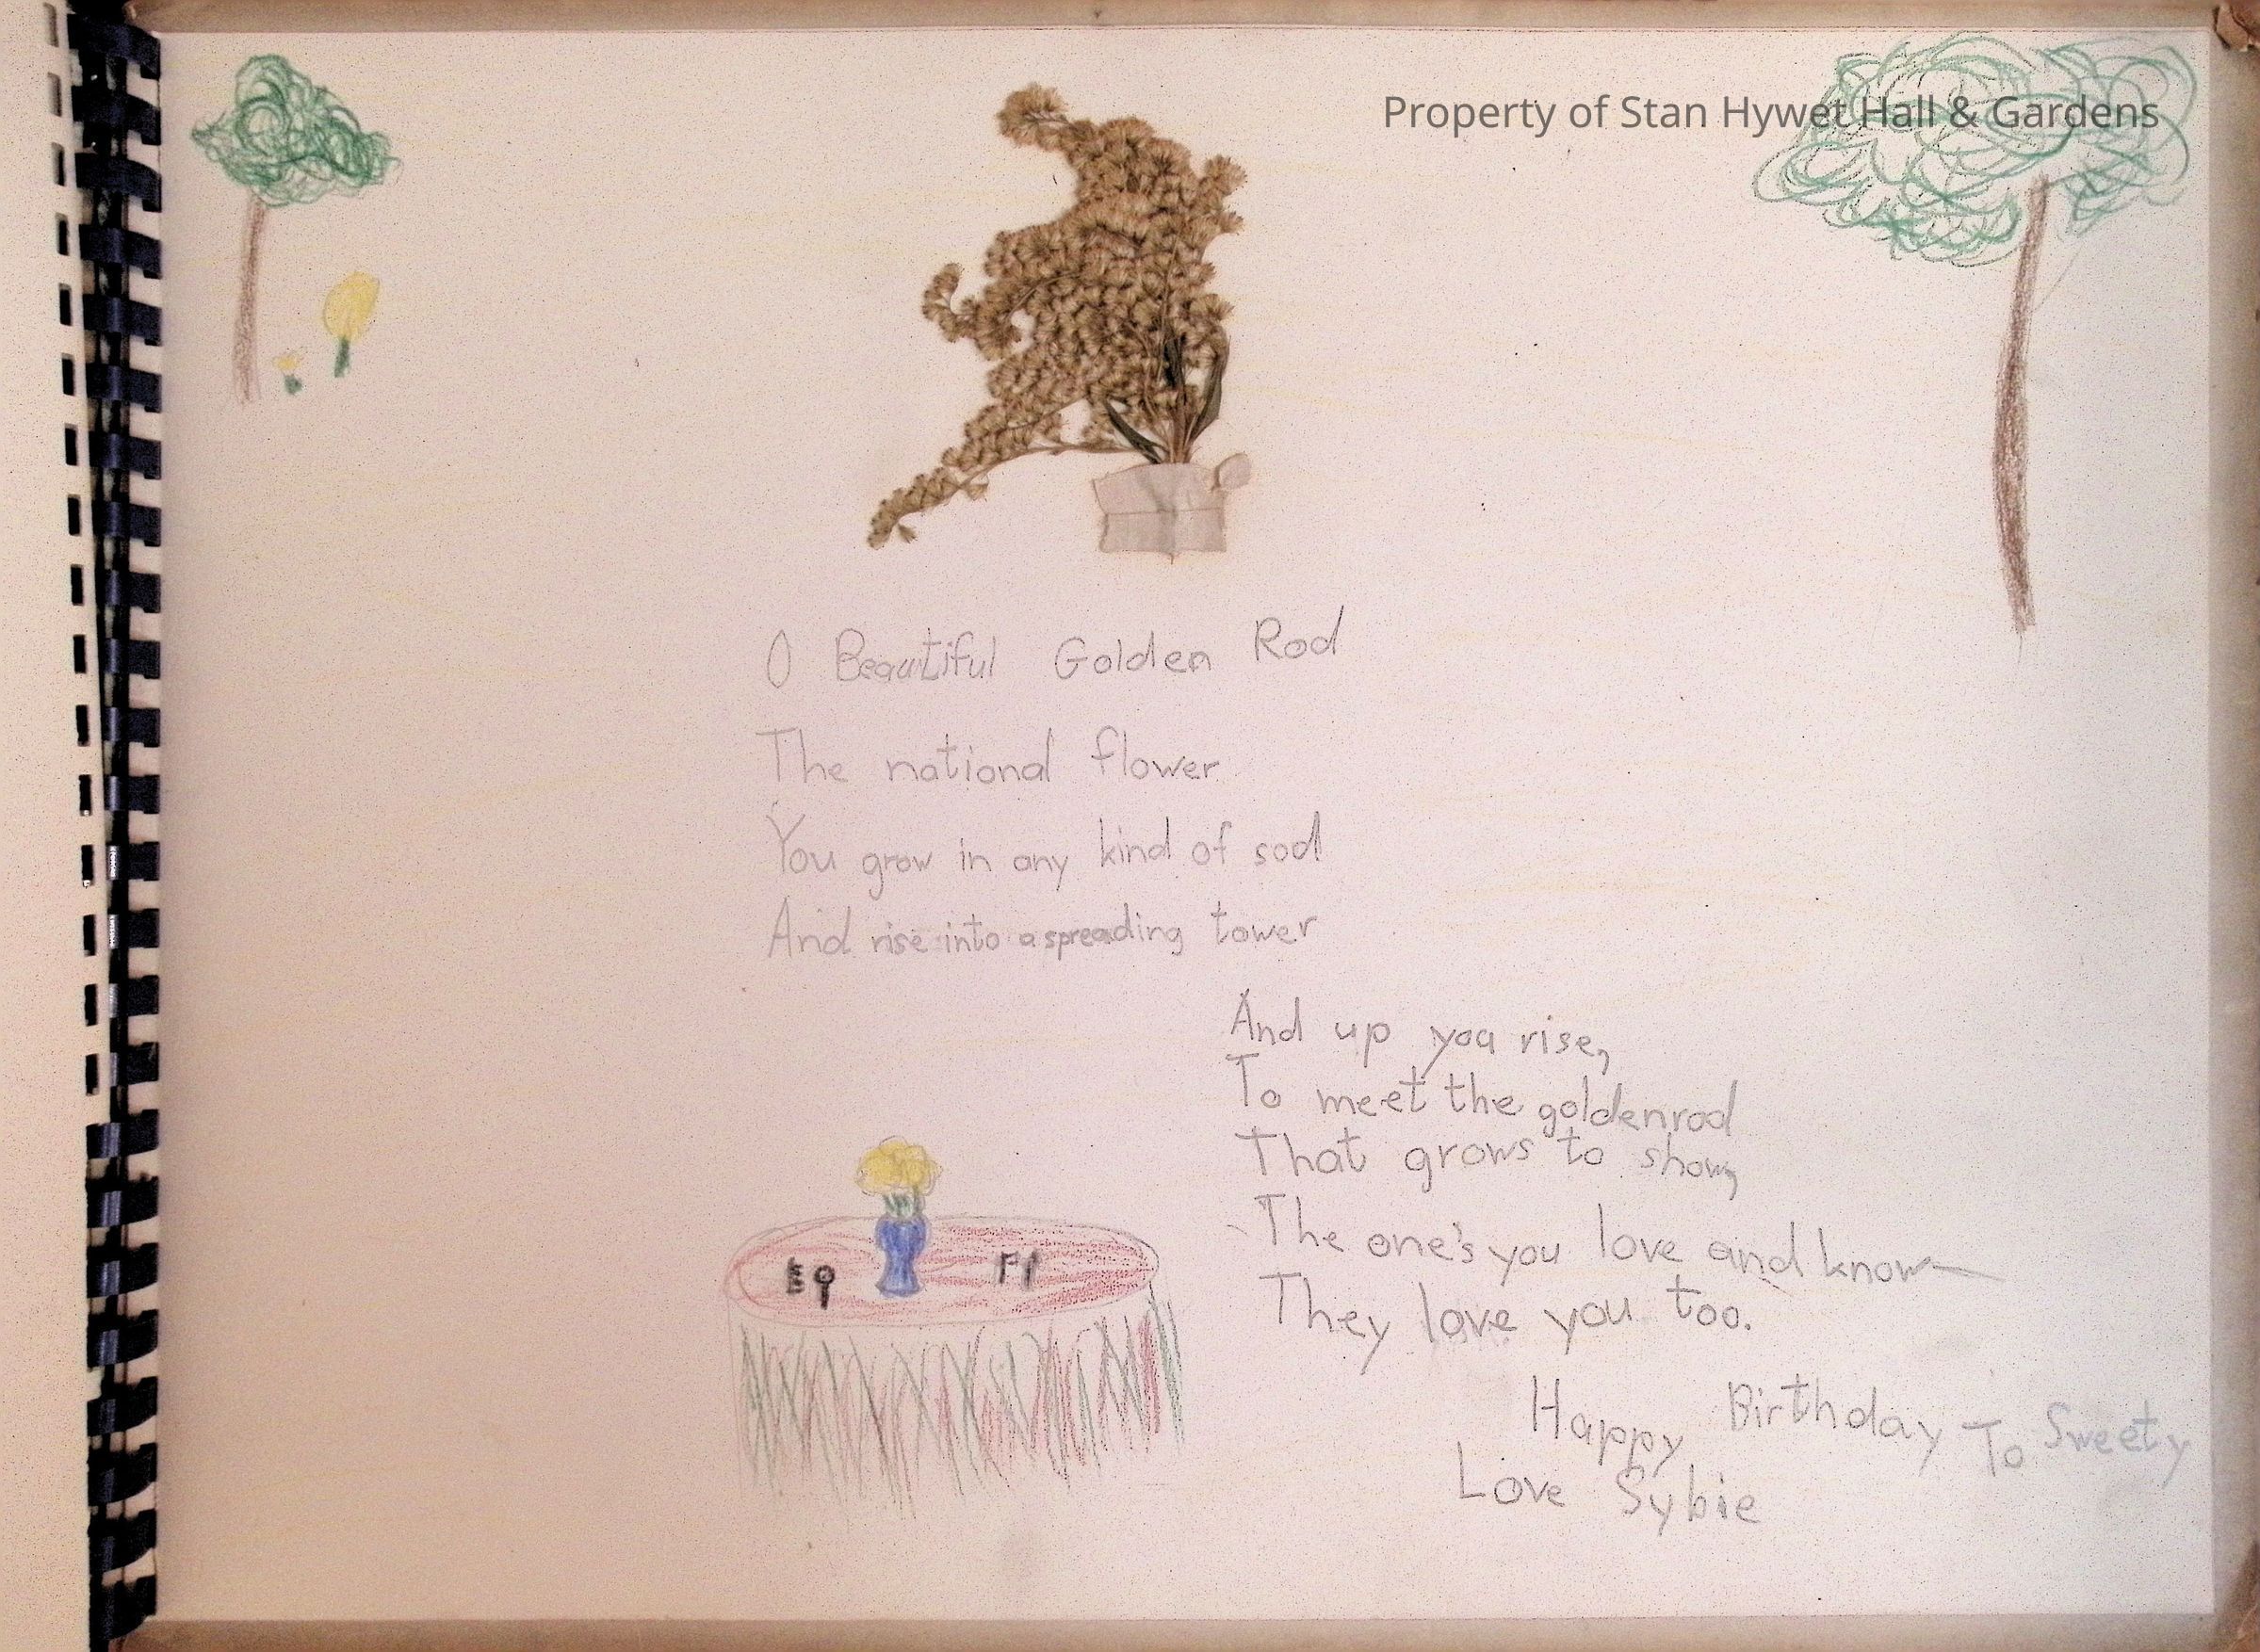 Property of Stan Hywet Hall & Gardens
O Beautiful Golden Rod
The national flower
You grow in any kind of sod
And rise into a spreading tower
And up you rise,
To meet the goldenrod
That grows to show,
The one's you love and know
They love you too.
Happy Birthday To Sweety
Love Sybie